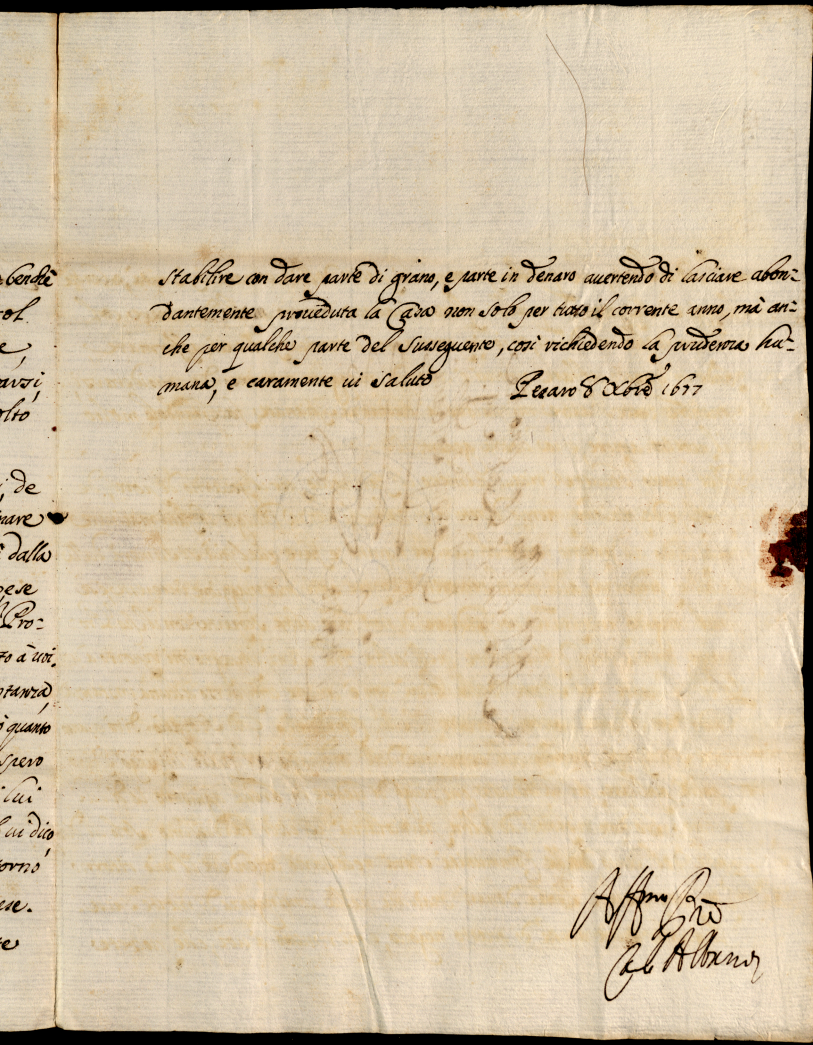 benchè
rol
e,
arsi,
olto
, de
nare
dalla
pese
Pro=
to à voi.
stanza,
quanto
spero
lui
vi dico
torno
ese.
te
stabilire con dare parte di grano, e parte in denaro avertendo di lasciare abon=
dantemente proveduta la Casa non solo per tutto il corrente anno, mà an=
che per qualche parte del susseguente, così richiedendo la prudenza hu=
mana, e caramente vi saluto Pesaro 8 Xbre 1677
Affmo Pre
Albani